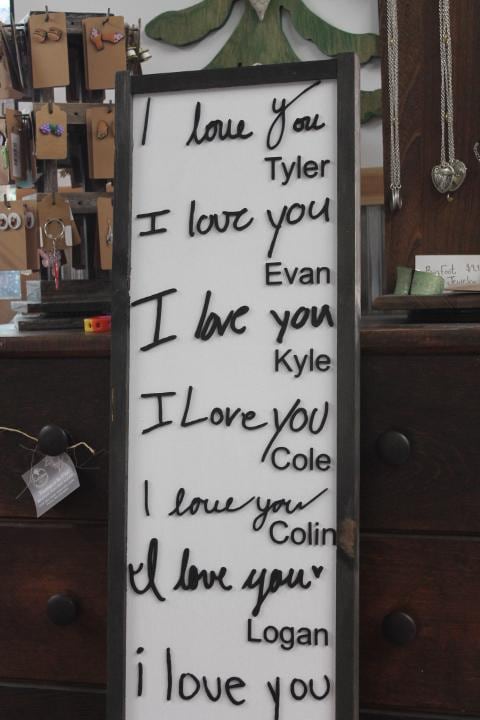 I love you
Tyler
I love you
Evan
I love you
Kyle
I Love you
Cole
I love you
Colin
I love you
Logan
i love you
Bigfoot
Jewelry